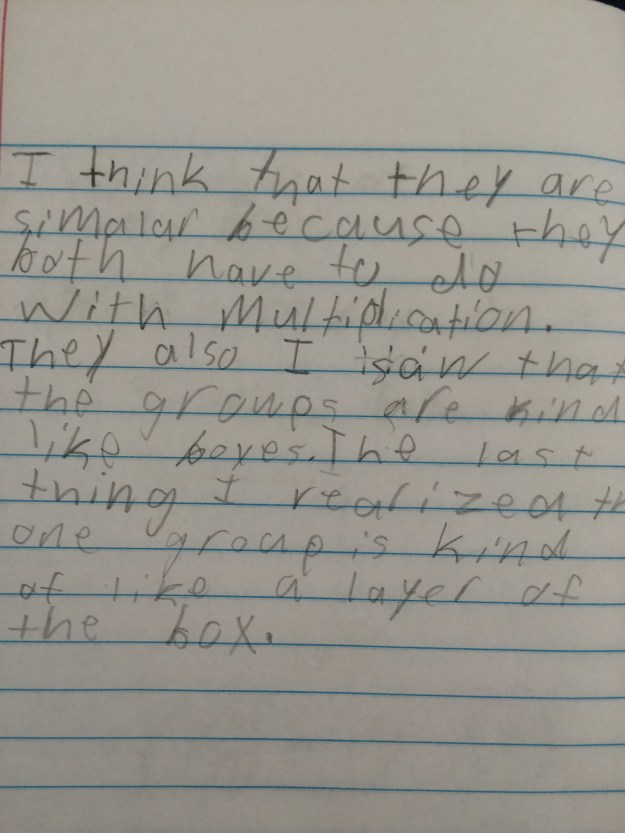 I think that they are
simalar because they
both have to do
with multiplication.
They also I saw that
the groups are kind
like boxes. The last
thing I realized th
one group is kind
of like a layer of
the box.